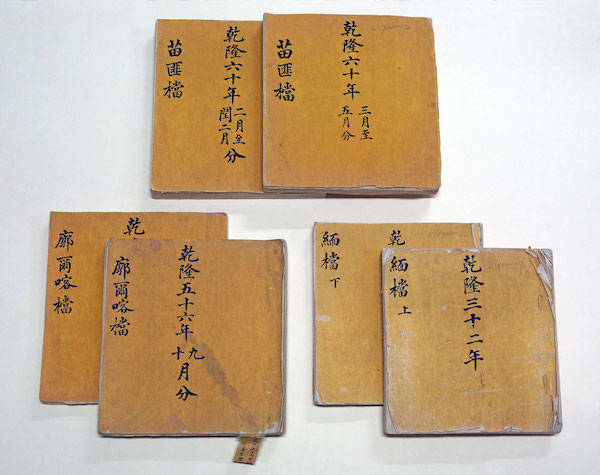 乾隆六十年二月至
閏二月分
苗匪檔
乾隆六十年
三月至
五月分
苗匪檔
乾
廓爾喀檔
乾隆五十六年九
十月分
廓爾喀檔
乾
緬檔下
乾隆三十二年
緬檔上